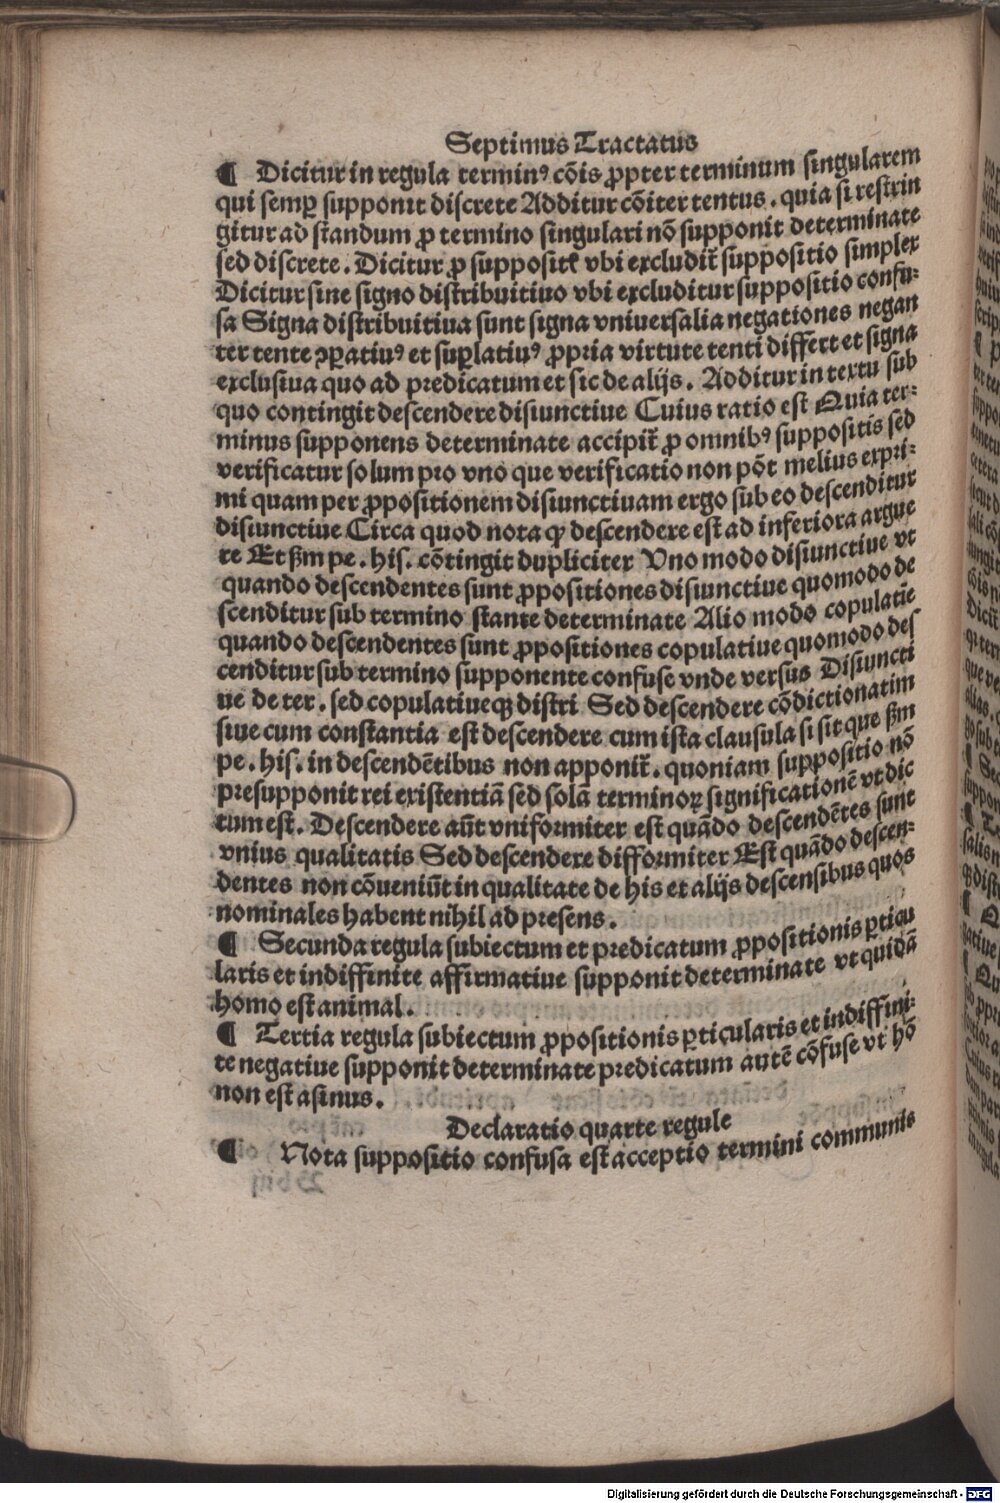 Septimus Tractatus
¶ Dicitur in regula terminꝰ cōis ꝓpter terminum singularem
qui semꝑ supponit discrete Additur cōiter tentus. quia si restrin
gitur ad standum ꝓ termino singulari nō supponit determinate
sed discrete. Dicitur ꝓ vbi excludit̃ suppositio simplex
Dicitur sine signo distribuitiuo vbi excluditur suppositio confu⸗
sa Signa distribuitiua sunt signa vniuersalia negationes negan
ter tente ꝯꝑatiuꝰ et suꝑlatiuꝰ ꝓpria virtute tenti differt et signa
exclusiua quo ad predicatum et sic de alijs. Additur in textu sub
quo contingit descendere disiunctiue Cuius ratio est Quia ter⸗
minus supponens determinate accipit̃ ꝓ omnibꝰ suppositis sed
verificatur solum pro vno que verificatio non pōt melius expri⸗
mi quam per ꝓpositionem disiunctiuam ergo sub eo descenditur
disiunctiue Circa quod nota ꝙ descendere est ad inferiora argue
re Et ẞm pe. his. cōtingit dupliciter Vno modo disiunctiue vt
quando descendentes sunt ꝓpositiones disiunctiue quomodo de
scenditur sub termino stante determinate Alio modo copulatiē
quando descendentes sunt ꝓpositiones copulatiue quomodo des
cenditur sub termino supponente confuse vnde versus Disiuncti
ue de ter. sed copulatiueqꝫ distri Sed descendere cōdictionatim
siue cum constantia est descendere cum ista clausula si sit que ẞm
pe. his. in descendētibus non apponit̃. quoniam suppositio nō
presupponit rei existentiā sed solā terminoꝝ significationē vt dic
tum est. Descendere aūt vniformiter est quādo descendētes sunt
vnius qualitatis Sed descendere difformiter Est quādo descen⸗
dentes non cōueniūt in qualitate de his et alijs descensibus quos
nominales habent nihil ad presens.
¶ Secunda regula subiectum et predicatum ꝓpositionis ꝑticu
laris et indiffinite affirmatiue supponit determinate vt quidā
homo est animal.
¶ Tertia regula subiectum ꝓpositionis ꝑticularis et indiffini⸗
te negatiue supponit determinate predicatum autē cōfuse vt hō
non est asinus.
Declaratio quarte regule
¶ Nota suppositio confusa est acceptio termini communis
Digitalisierung gefördert durch die Deutsche Forschungsgemeinschaft - DFG